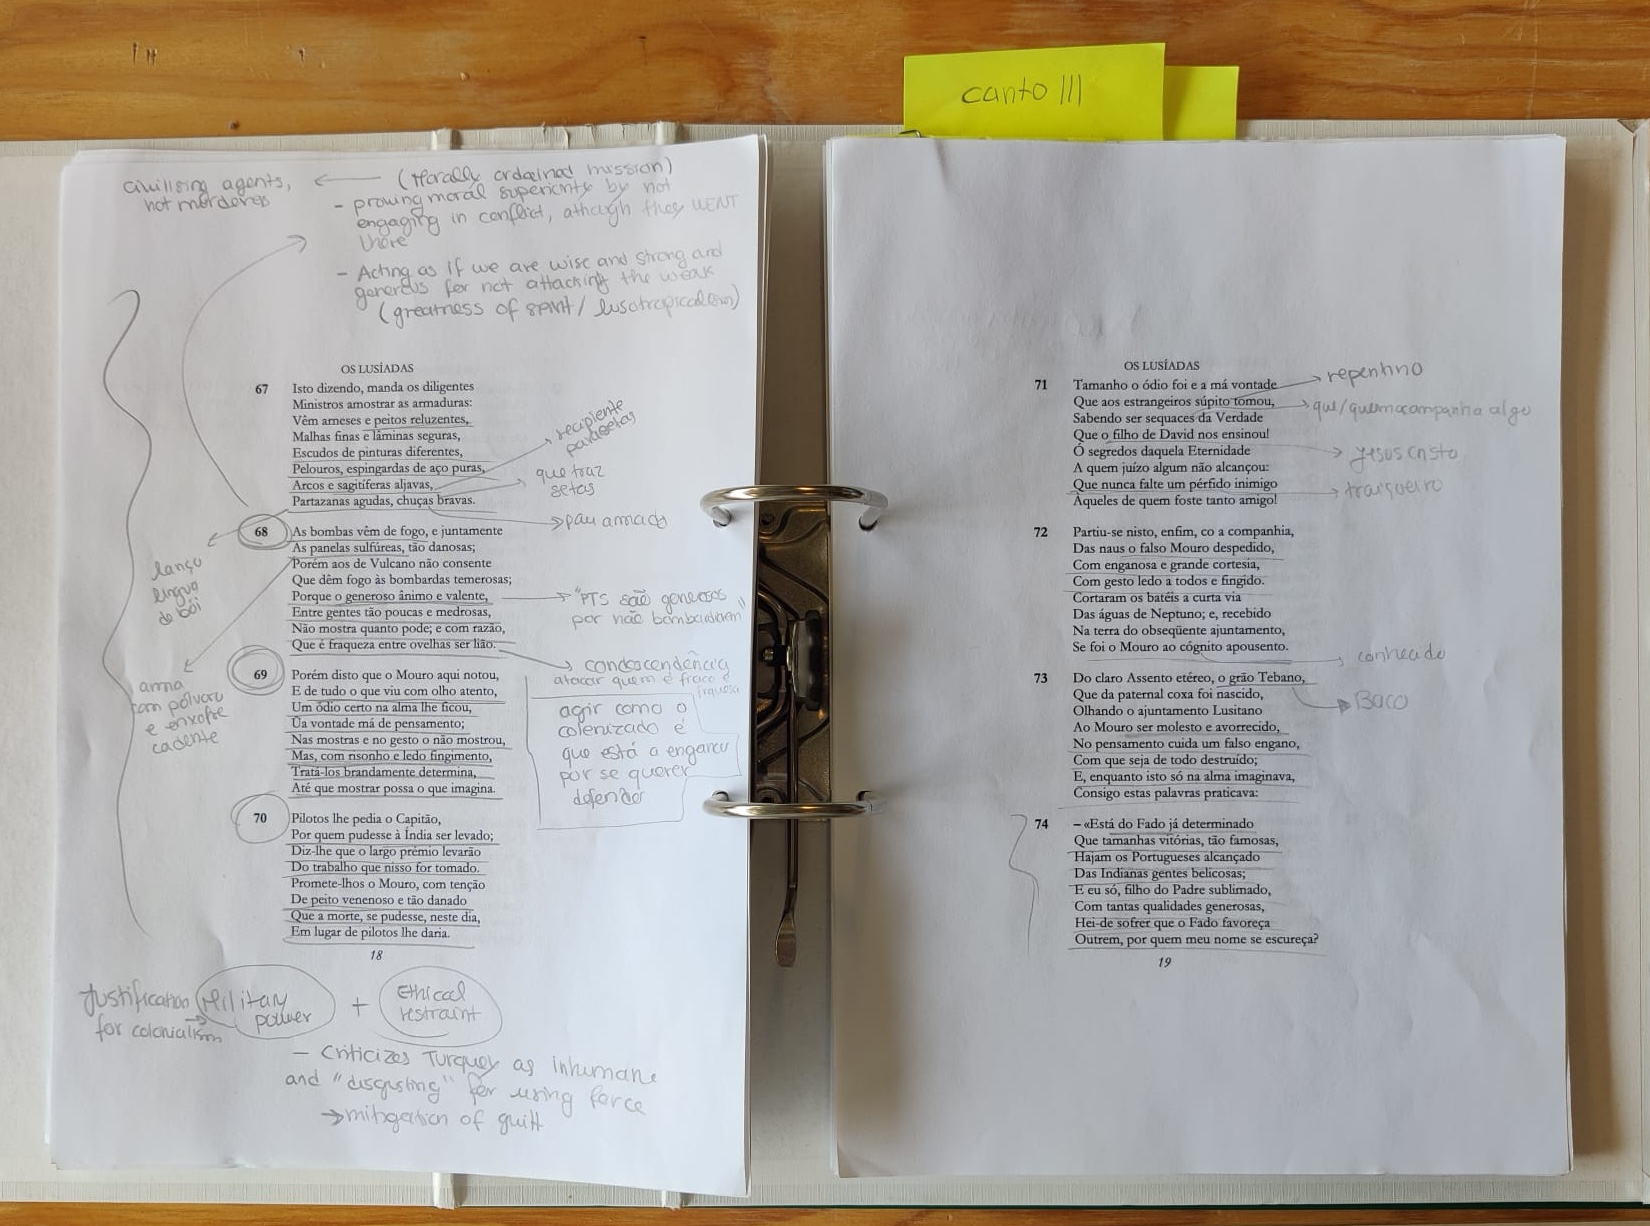 canto III
civilising agents,
not morderers
(Morally ordained mission)
- proving moral superiority by not
engaging in conflict, athough they WENT
there
- Acting as if we are wise and strong and
generous for not attacking the weak
(greatness of spirit / lusotropicalism)
OS LUSÍADAS
67 Isto dizendo, manda os diligentes
Ministros amostrar as armaduras:
Vêm arneses e peitos reluzentes,
Malhas finas e lâminas seguras,
Escudos de pinturas diferentes,
Pelouros, espingardas de aço puras,
Arcos e sagitíferas aljavas,
Partazanas agudas, chuças bravas.
recipiente
para setas
que traz
setas
pau armado
68 As bombas vêm de fogo, e juntamente
As panelas sulfúreas, tão danosas;
Porém aos de Vulcano não consente
Que dêm fogo às bombardas temerosas;
Porque o generoso ânimo e valente,
Entre gentes tão poucas e medrosas,
Não mostra quanto pode; e com razão,
Que é fraqueza entre ovelhas ser lião.
lança
língua
de boi
"PTS são generosos
por não bombardearem"
condescendência
atacar quem é fraco é
fraqueza
69 Porém disto que o Mouro aqui notou,
E de tudo o que viu com olho atento,
Um ódio certo na alma lhe ficou,
Ũa vontade má de pensamento;
Nas mostras e no gesto o não mostrou,
Mas, com risonho e ledo fingimento,
Tratá-los brandamente determina,
Até que mostrar possa o que imagina.
arma
com pólvora
e enxofre
cadente
agir como o
colonizado é
que está a enganar
por se querer
defender
70 Pilotos lhe pedia o Capitão,
Por quem pudesse à Índia ser levado;
Diz-lhe que o largo prémio levarão
Do trabalho que nisso for tomado.
Promete-lhos o Mouro, com tenção
De peito venenoso e tão danado
Que a morte, se pudesse, neste dia,
Em lugar de pilotos lhe daria.
18
Justification
for colonialism
Military
power
+
Ethical
restraint
- Criticizes Turquey as inhumane
and "disgusting" for using force
→ mitigation of guilt
OS LUSÍADAS
71 Tamanho o ódio foi e a má vontade
Que aos estrangeiros súpito tomou,
Sabendo ser sequaces da Verdade
Que o filho de David nos ensinou!
Ó segredos daquela Eternidade
A quem juízo algum não alcançou:
Que nunca falte um pérfido inimigo
Àqueles de quem foste tanto amigo!
repentino
que/quem acompanha algo
Jesus Cristo
traiçoeiro
72 Partiu-se nisto, enfim, co a companhia,
Das naus o falso Mouro despedido,
Com enganosa e grande cortesia,
Com gesto ledo a todos e fingido.
Cortaram os batéis a curta via
Das águas de Neptuno; e, recebido
Na terra do obseqüente ajuntamento,
Se foi o Mouro ao cógnito apousento.
conhecido
73 Do claro Assento etéreo, o grão Tebano,
Que da paternal coxa foi nascido,
Olhando o ajuntamento Lusitano
Ao Mouro ser molesto e avorrecido,
No pensamento cuida um falso engano,
Com que seja de todo destruído;
E, enquanto isto só na alma imaginava,
Consigo estas palavras praticava:
Baco
74 – «Está do Fado já determinado
Que tamanhas vitórias, tão famosas,
Hajam os Portugueses alcançado
Das Indianas gentes belicosas;
E eu só, filho do Padre sublimado,
Com tantas qualidades generosas,
Hei-de sofrer que o Fado favoreça
Outrem, por quem meu nome se escureça?
19